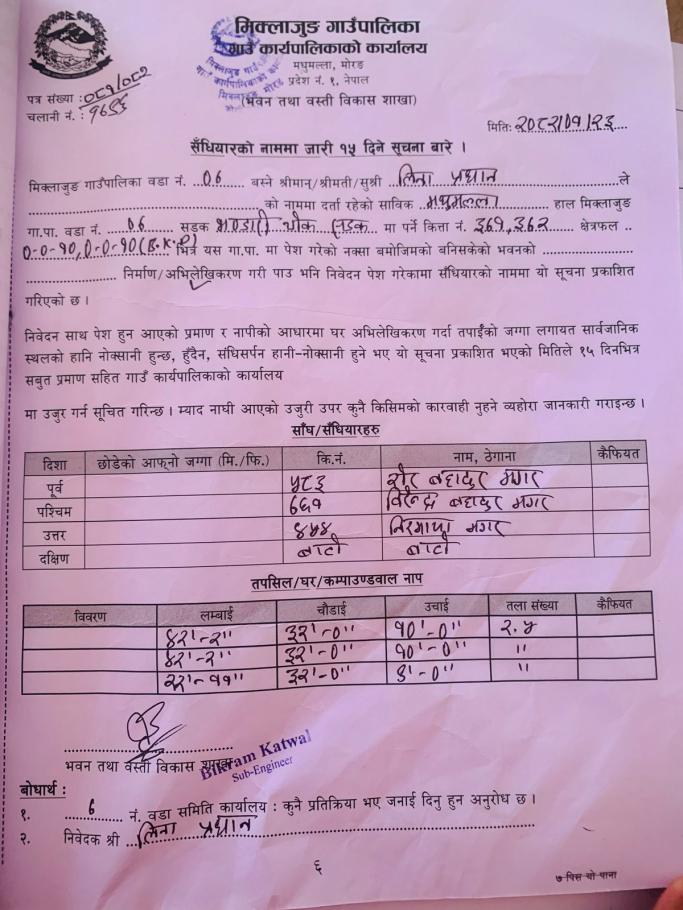 मिक्लाजुङ गाउँपालिका
गाउँ कार्यपालिकाको कार्यालय
मधुमल्ला, मोरङ
प्रदेश नं. १, नेपाल
(भवन तथा वस्ती विकास शाखा)
पत्र संख्या : ०८१/०८२
चलानी नं. :
मिति: २०८२/०१/२३
सँधियारको नाममा जारी १५ दिने सूचना बारे ।
मिक्लाजुङ गाउँपालिका वडा नं. ०६ बस्ने श्रीमान्/श्रीमती/सुश्री लिना प्रधान ले
को नाममा दर्ता रहेको साविक मधुमल्ला हाल मिक्लाजुङ
गा.पा. वडा नं. ०६ सडक भण्डारी चोक सडक मा पर्ने कित्ता नं. ३६१, ३६२ क्षेत्रफल
०-०-१०, ०-०-१० (B.K.D) भित्र यस गा.पा. मा पेश गरेको नक्सा बमोजिमको बनिसकेको भवनको
निर्माण/अभिलेखिकरण गरी पाउ भनि निवेदन पेश गरेकामा सँधियारको नाममा यो सूचना प्रकाशित
गरिएको छ ।
निवेदन साथ पेश हुन आएको प्रमाण र नापीको आधारमा घर अभिलेखिकरण गर्दा तपाईंको जग्गा लगायत सार्वजानिक
स्थलको हानि नोक्सानी हुन्छ, हुँदैन, संधिसर्पन हानी-नोक्सानी हुने भए यो सूचना प्रकाशित भएको मितिले १५ दिनभित्र
सबुत प्रमाण सहित गाउँ कार्यपालिकाको कार्यालय
मा उजुर गर्न सूचित गरिन्छ । म्याद नाघी आएको उजुरी उपर कुनै किसिमको कारवाही नुहने व्यहोरा जानकारी गराइन्छ ।
साँध/सँधियारहरु
दिशा छोडेको आफ्नो जग्गा (मि./फि.) कि.नं. नाम, ठेगाना कैफियत
पूर्व ५८३ शेर बहादुर मगर
पश्चिम ६६१ विरेन्द्र बहादुर मगर
उत्तर ४५४ मगर
दक्षिण बाटो बाटो
तपसिल/घर/कम्पाउण्डवाल नाप
विवरण लम्बाई चौडाई उचाई तला संख्या कैफियत
४२'-२" ३२'-०" १०'-०" २.५
४२'-२" ३२'-०" १०'-०" "
२२'-११" ३२'-०" "
भवन तथा वस्ती विकास शाखा
Bikram Katwal
Sub-Engineer
बोधार्थ :
१. ६ नं. वडा समिति कार्यालय : कुनै प्रतिक्रिया भए जनाई दिनु हुन अनुरोध छ ।
२. निवेदक श्री लिना प्रधान
६
७ पिस यो पाना